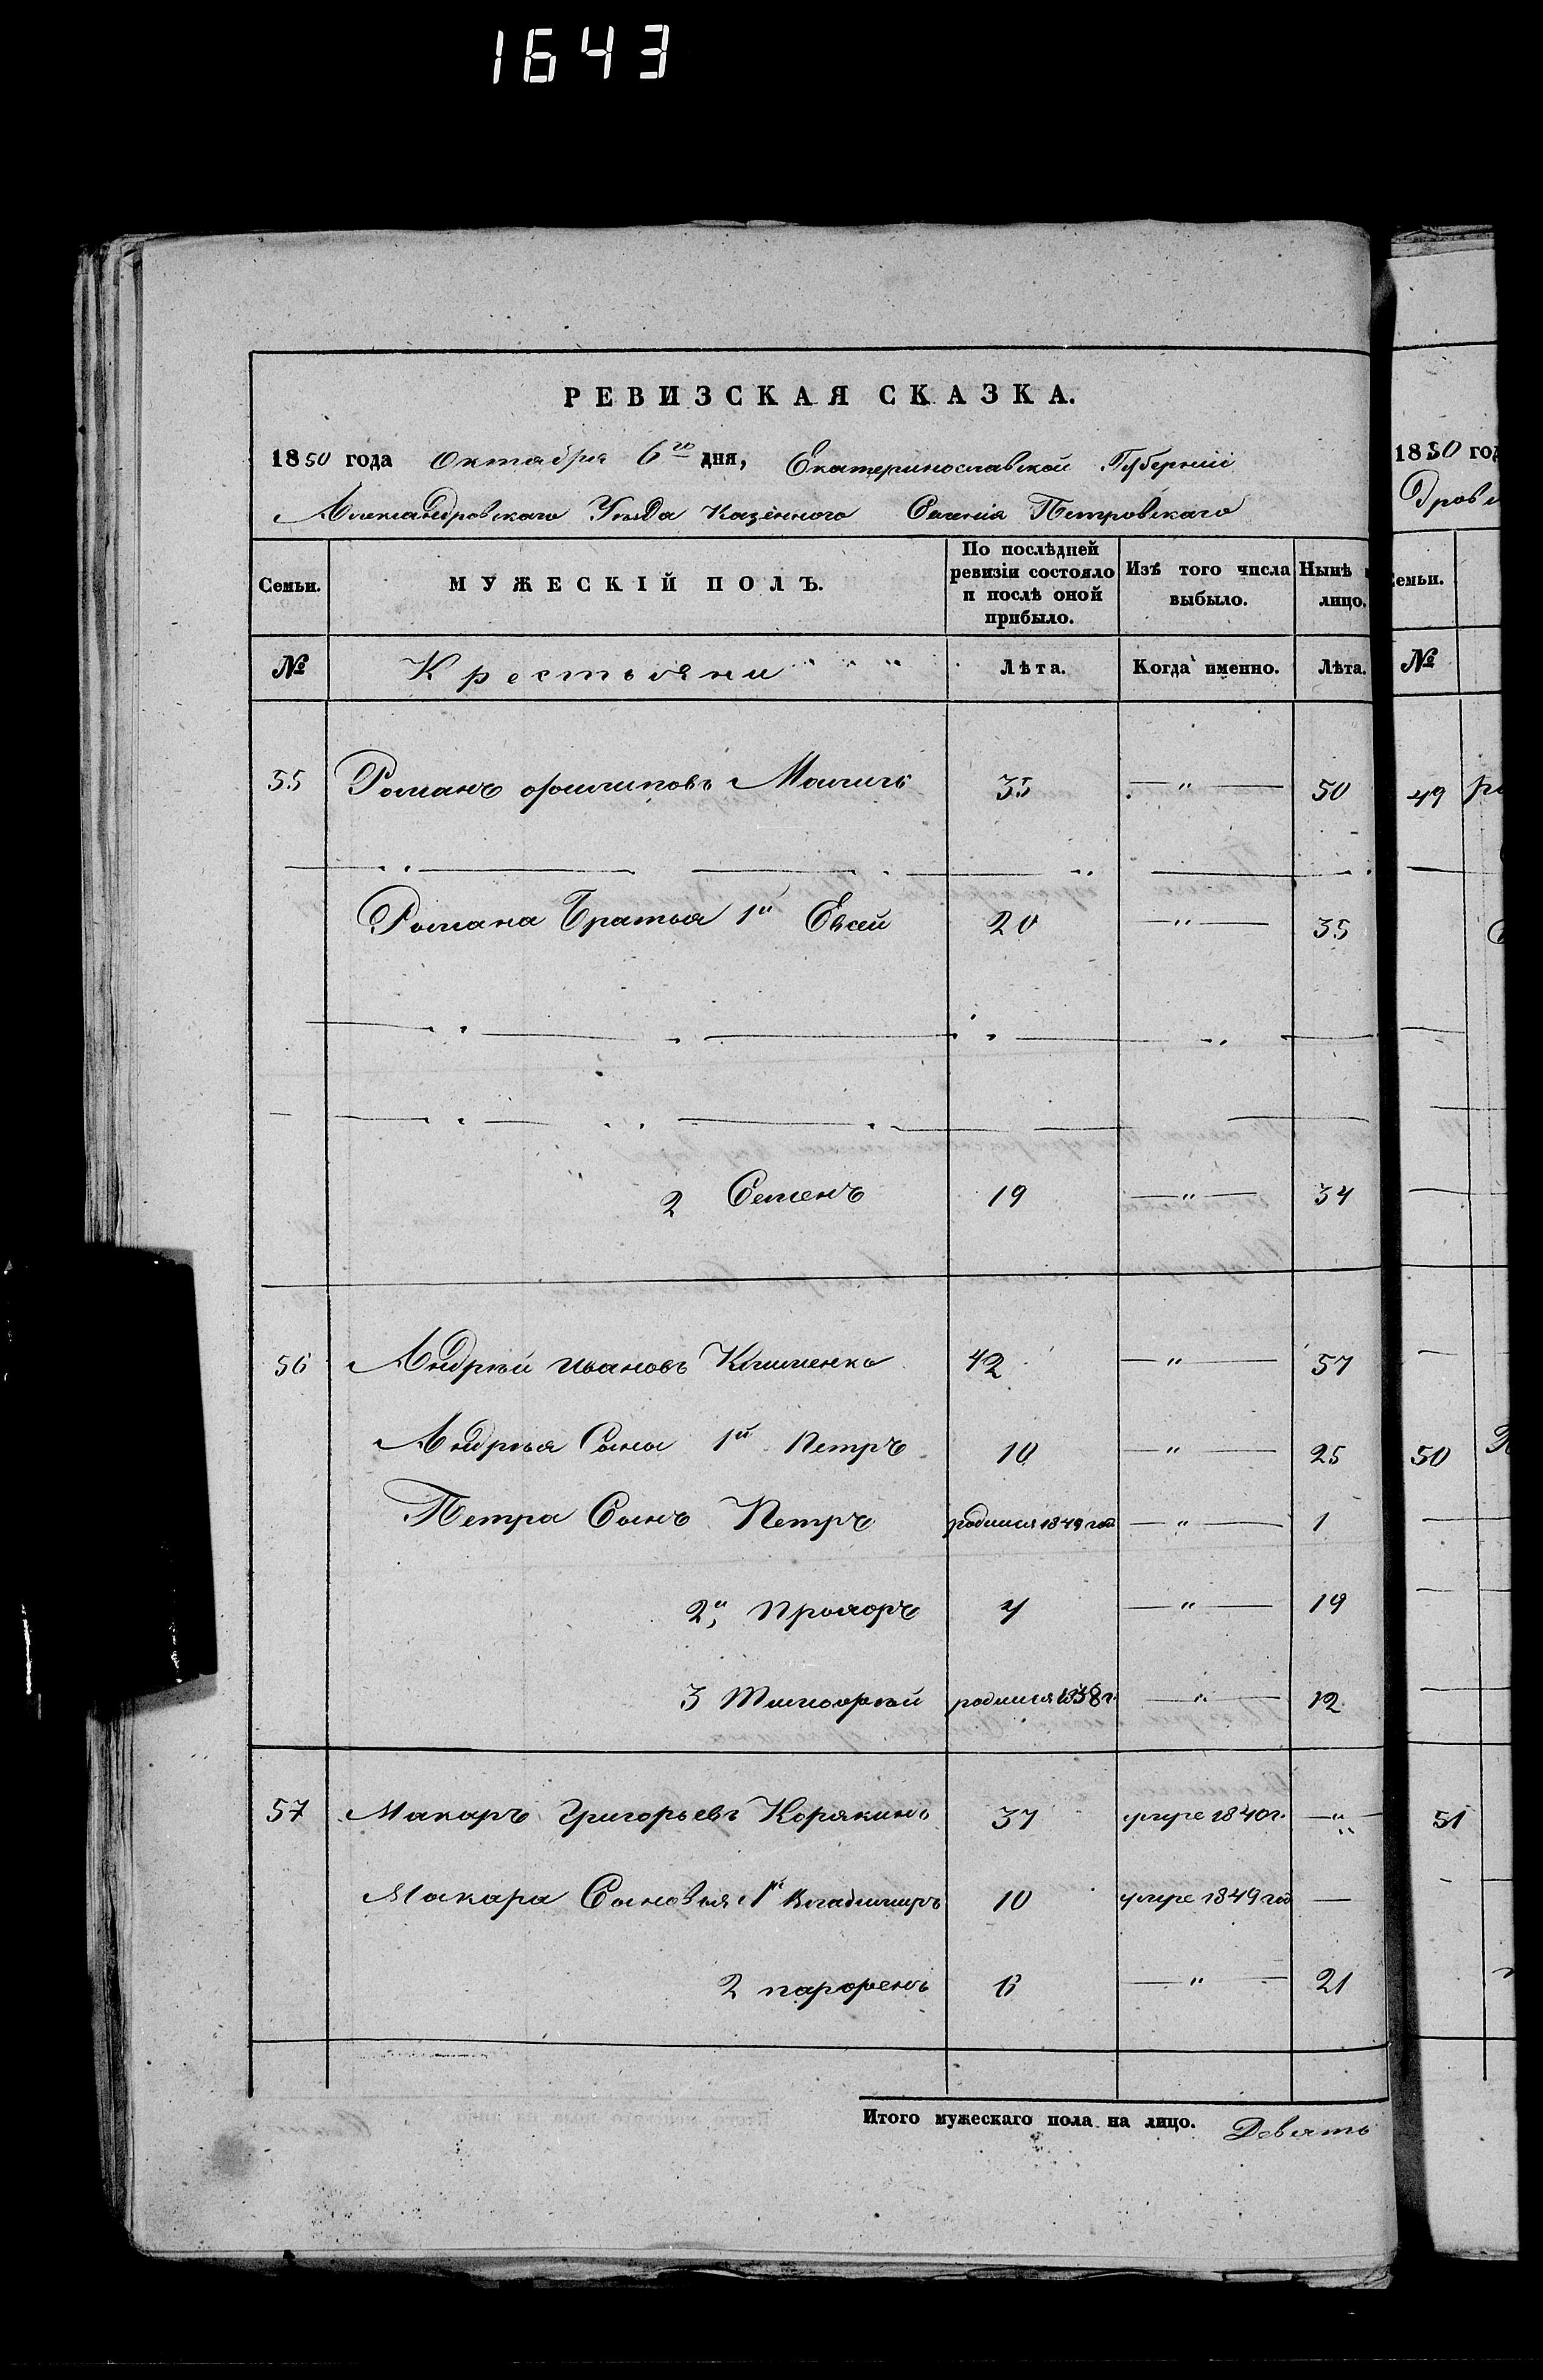 1643
РЕВИЗСКАЯ СКАЗКА.
1850 года Октября 6го дня, Екатеринославской Губерніи
Александровскаго Уѣзда Казеннаго Селенія Петровскаго
Семьи. МУЖЕСКІЙ ПОЛЪ. По послѣдней ревизіи состояло и послѣ оной прибыло. Изъ того числа выбыло. Нынѣ лицо.
№ Крестьяни Лѣта. Когда именно. Лѣта.
55 Романъ филиповъ 35 — " — 50
Романа Братья 1й Евсей 20 — " — 35
2 Семенъ 19 — " — 34
56 Андрѣй Ивановъ Клименко 42 — " — 57
Андрѣя Сыны 1й Петръ 10 — " — 25
Петра Сынъ Петръ родился 1849 год — " — 1
2й, Прохоръ 4 — " — 19
3 Тимофѣй родился 1838 г. — " — 12
57 Макаръ Григорьевъ Корякинъ 37 умре 1840 г. — " —
Макара Сыновья 1й Владимиръ 10 умре 1849 год —
2 парфенъ 6 — " — 21
Итого мужескаго пола на лицо. Девять
1850 год
Дров
Семьи.
№
49
50
51